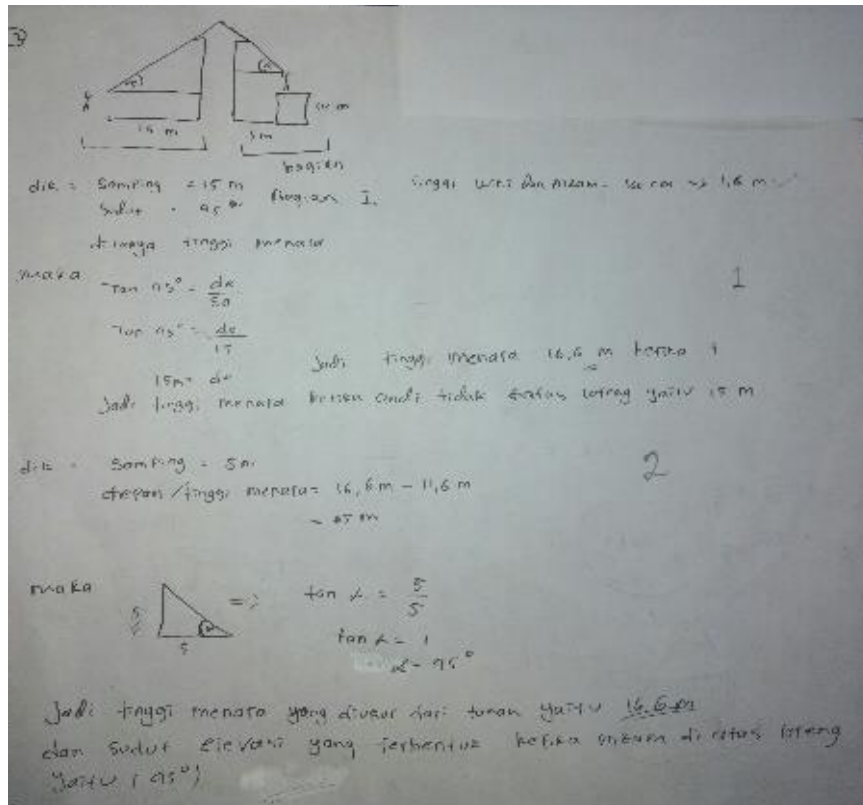 15 m
5 m
10 m
bagian
dik = Samping = 15 m
Sudut = 45° (bagian I.
tinggi dan nizam = 160 cm => 1,6 m
ditanya tinggi menara
maka
1
Tan 45° = de/sa
Tan 45° = de/15
15 m = de
Jadi tinggi menara 16,6 m ketika
Jadi tinggi menara ketika andi tidak diatas loteng yaitu 15 m
dik = Samping = 5 m
2
depan/tinggi menara = 16,6 m - 11,6 m
= 5 m
maka
5
5
α
=> tan α = 5/5
tan α = 1
α = 45°
Jadi tinggi menara yang diukur dari tanah yaitu 16.6 m
dan sudut elevasi yang terbentuk ketika nizam di atas loteng
yaitu (45°)